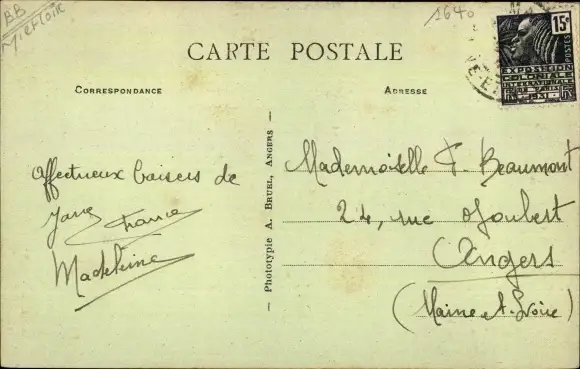 BB
1640
15c
POSTES
EXPOSITION
COLONIALE
INTERNATIONALE
PARIS
1931
CARTE POSTALE
CORRESPONDANCE
ADRESSE
Affectueux baisers de
Madeleine
— Phototypie A. BRUEL, ANGERS —
Mademoiselle F. Beaumont
24, rue Joubert
Angers
(Maine et Loire)